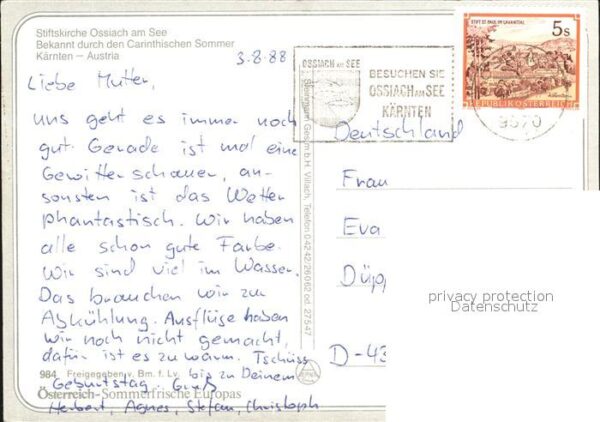 Stiftskirche Ossiach am See
Bekannt durch den Carinthischen Sommer
Kärnten – Austria
3.8.88
Liebe Mutter,
uns geht es immer noch
gut. Gerade ist mal eine
Gewitterschauer, an-
sonsten ist das Wetter
phantastisch. Wir haben
alle schon gute Farbe.
Wir sind viel im Wasser.
Das brauchen wir zur
Abkühlung. Ausflüge haben
wir noch nicht gemacht,
dafür ist es zu warm. Tschüss
bis zu Deinem
Geburtstag. Gruß
Herbert, Agnes, Stefan, Christoph
984 Freigegeben v. Bm. f. Lv.
Österreich-Sommerfrische Europas
OSSIACH AM SEE
BESUCHEN SIE
OSSIACH AM SEE
KÄRNTEN
STIFT ST. PAUL IM LAVANTTAL
5s
REPUBLIK ÖSTERREICH
9570
Ges.m.b.H. Villach, Telefon 04242/26062 od. 27547
Deutschland
Frau
Eva
Düpp
D-43
privacy protection
Datenschutz